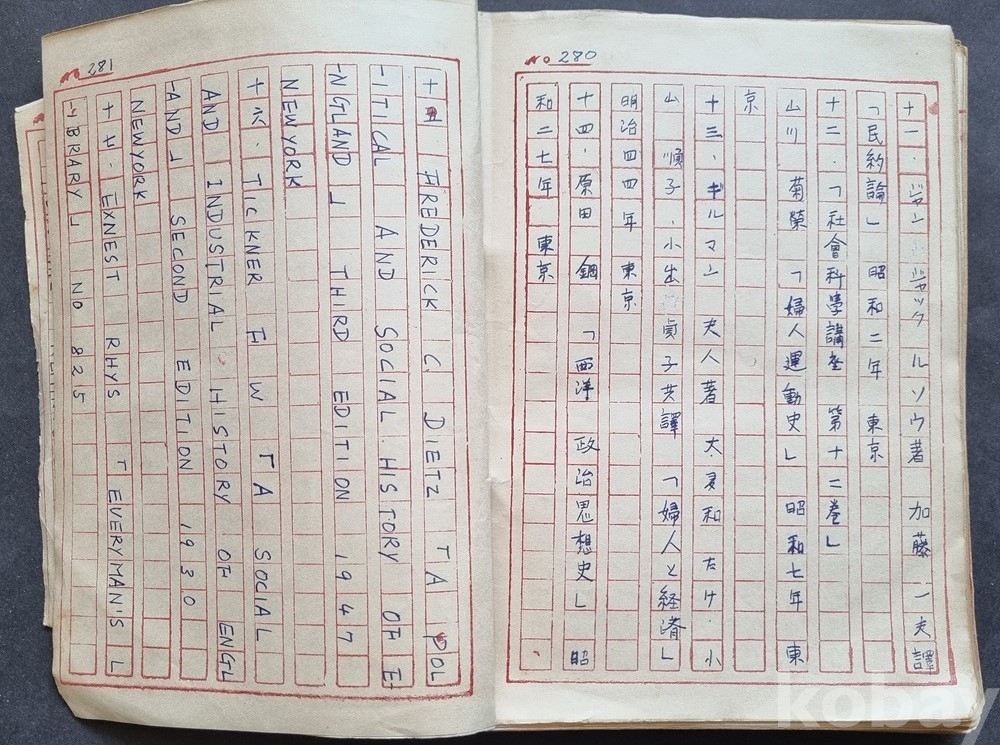 No 280
十一．ジャン ジャック ルソウ著 加藤 一夫譯
「民約論」 昭和二年 東京
十二．「社會科學講座 第十二巻」
山川 菊榮 「婦人運動史」 昭和七年 東
京
十三．ギルマン 夫人著 大 和 たけ．小
山 順子．小出 貞子共譯 「婦人と経済」
明治四四年 東京
十四．原田 鋼 「西洋 政治思想史」 昭
和二七年 東京
No 281
十五 FREDERICK C. DIETZ 「A POL
-ITICAL AND SOCIAL HISTORY OF E
-NGLAND」 THIRD EDITION 1947
NEWYORK
十六．TICKNER F W 「A SOCIAL
AND INDUSTRIAL HISTORY OF ENGL
-AND」 SECOND EDITION 1930
NEWYORK
十七．EXNEST RHYS 「EVERYMAN'S L
-IBRARY」 NO 825
kobay